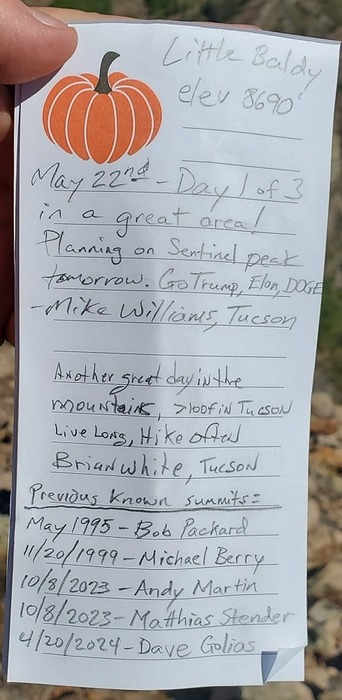 Little Baldy
elev 8690'
May 22nd - Day 1 of 3
in a great area!
Planning on Sentinel peak
tomorrow. Go Trump, Elon, DOGE
-Mike Williams, Tucson
Another great day in the
mountains, >100F in Tucson
Live Long, Hike often
Brian White, Tucson
Previous known summits=
May 1995 - Bob Packard
11/20/1999 - Michael Berry
10/8/2023 - Andy Martin
10/8/2023 - Matthias Stender
4/20/2024 - Dave Golias